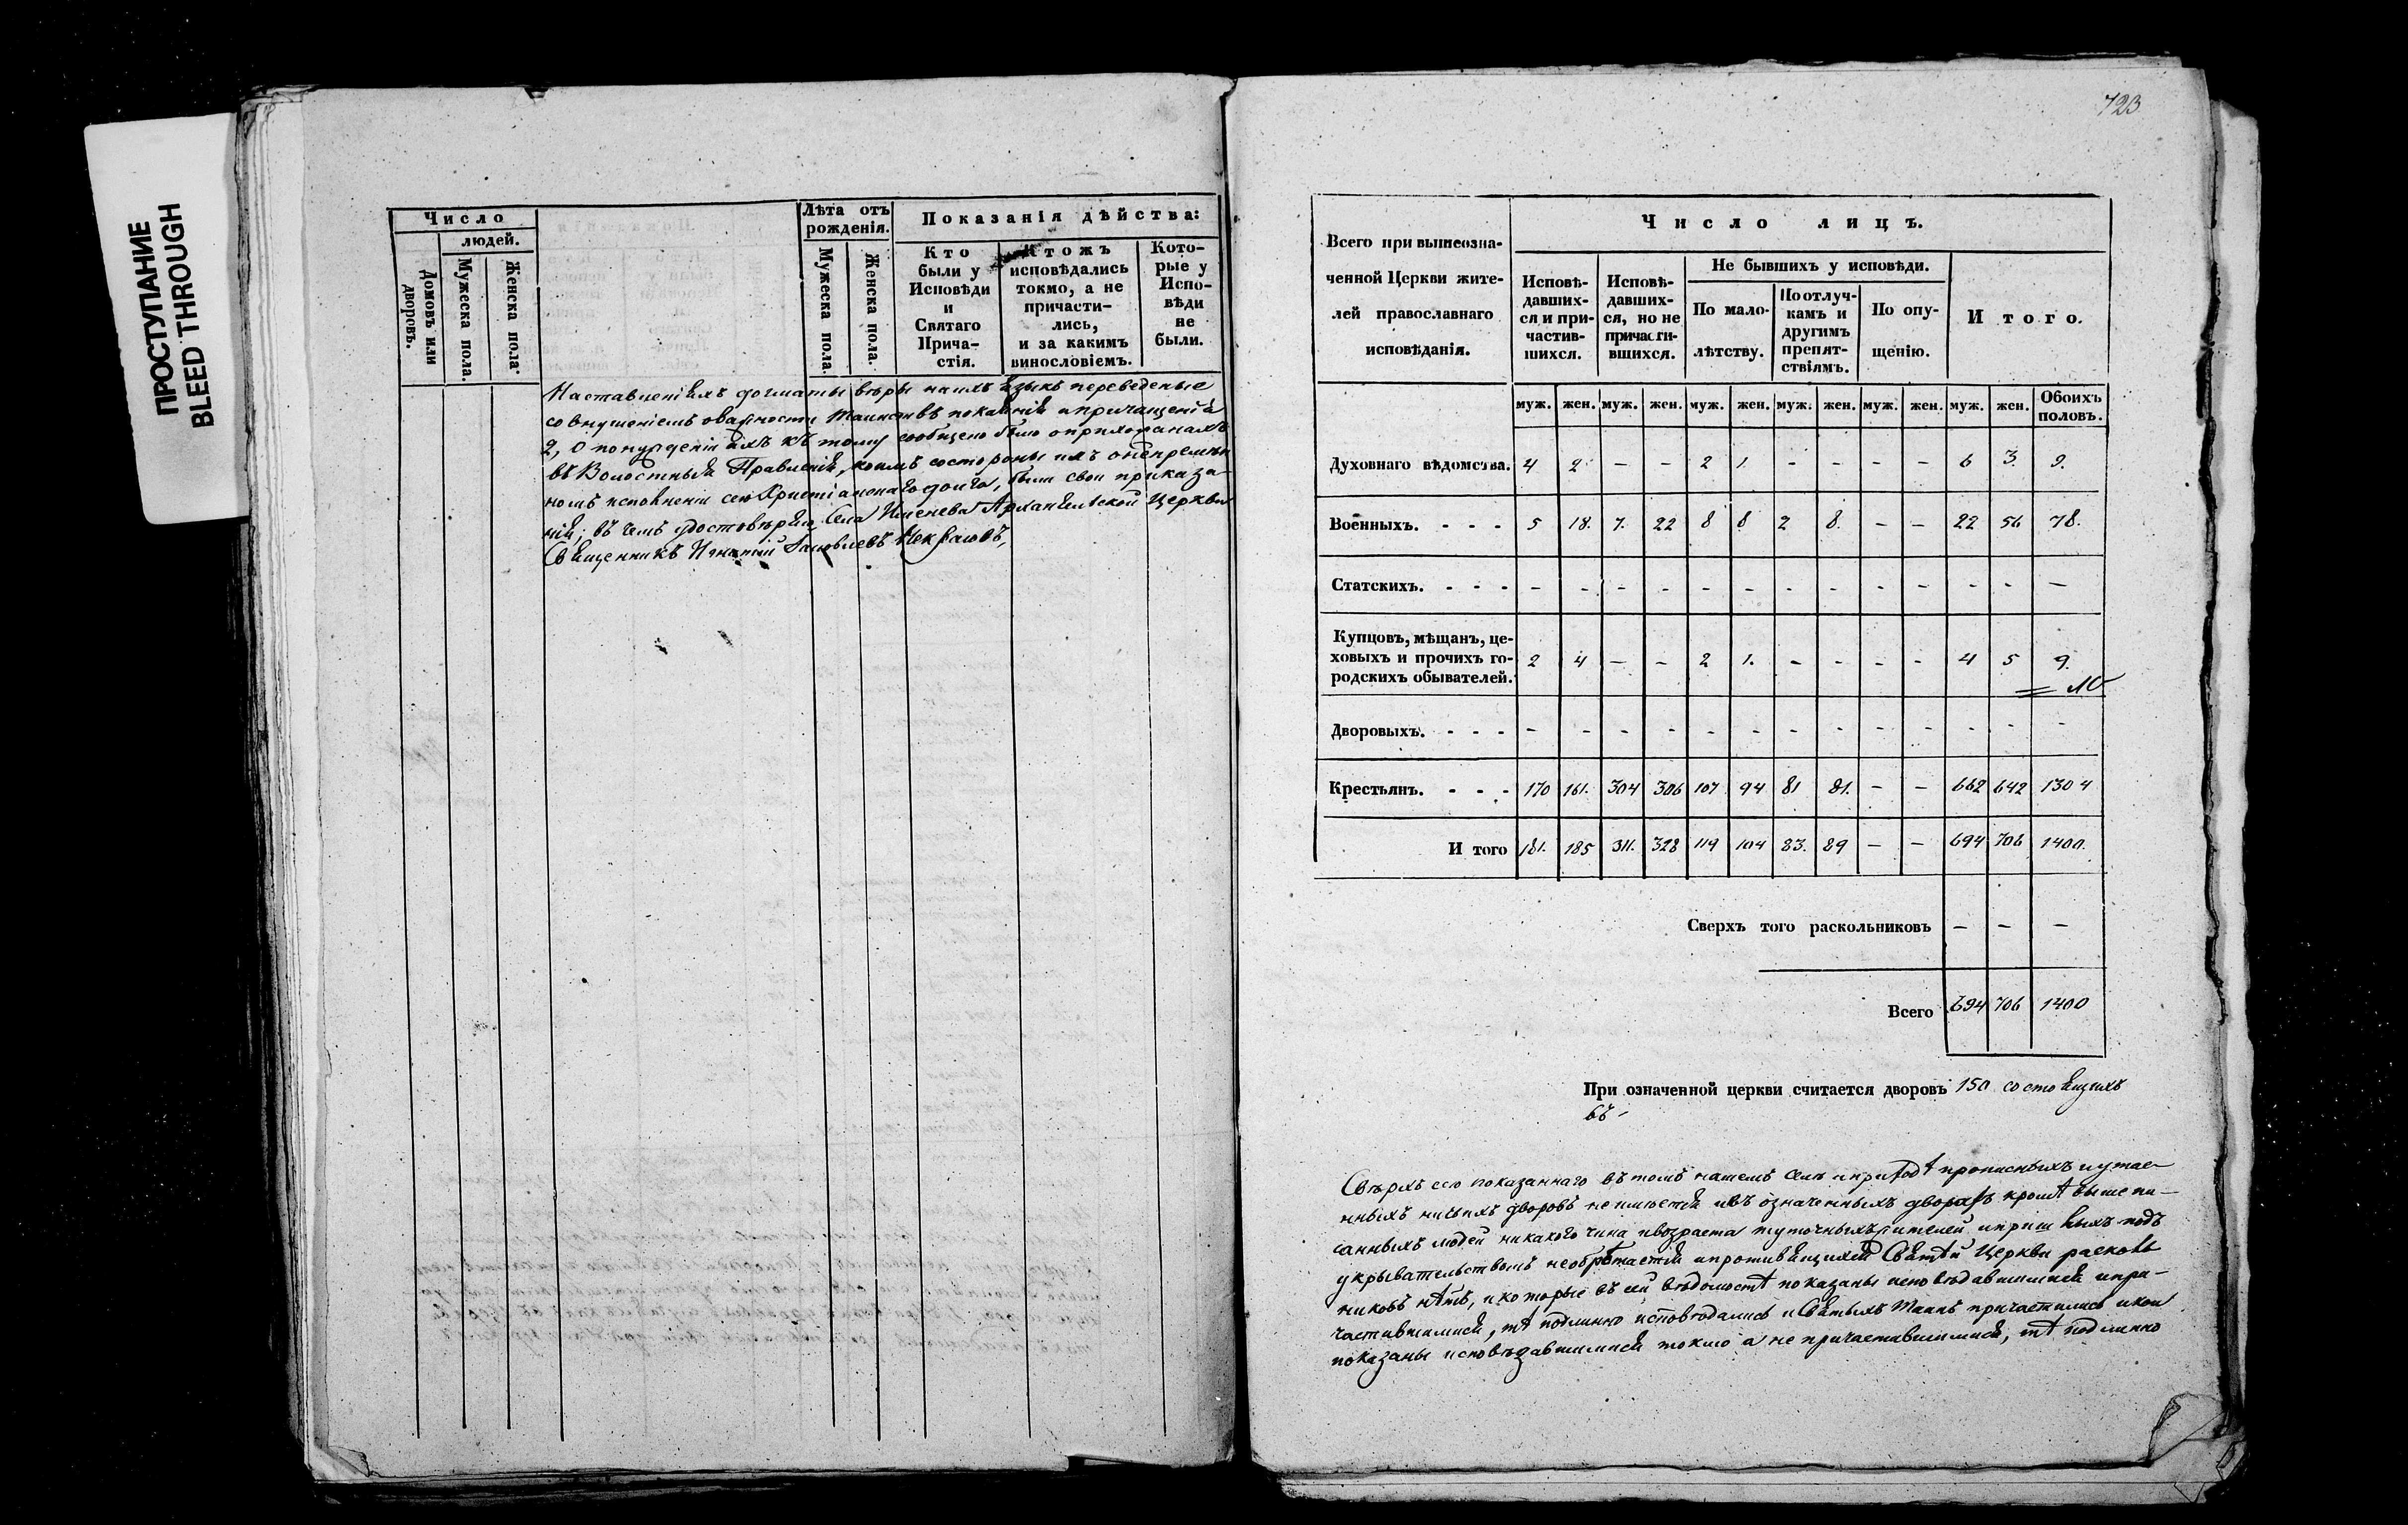 ПРОСТУПАНИЕ
BLEED THROUGH
Число
людей.
Домовъ или дворовъ.
Мужеска пола.
Женска пола.
Лѣта отъ рожденія.
Мужеска пола.
Женска пола.
Показанія дѣйства:
Кто были у Исповѣди и Святаго Причастія.
Ктожъ исповѣдались токмо, а не причастились, и за какимъ винословіемъ.
Которые у Исповѣди не были.
Наставленіи ихъ догматы вѣры на ихъ языкъ переведеные
со внушеніемъ о важности таинствъ покаянія и причащенія
2, О понужденіи ихъ къ тому сообщено было о прихожанахъ
въ Волостныя Правленія, коимъ со стороны ихъ о непремѣн
номъ исполненіи сего Христіанскаго долга, были свои приказа-
нія; въ чемъ удостовѣряю Села Архангельской Церкви
Священникъ Игнатій Яковлевъ Некрасовъ,
723
Всего при вышеозна-
ченной Церкви жите-
лей православнаго
исповѣданія.
Число лицъ.
Исповѣ-
давших-
ся и при-
частив-
шихся.
Исповѣ-
давших-
ся, но не
причасти-
вшихся.
Не бывшихъ у исповѣди.
По мало-
лѣтству.
По отлуч-
камъ и
другимъ
препят-
ствіямъ.
По опу-
щенію.
Итого.
муж. жен. муж. жен. муж. жен. муж. жен. муж. жен. муж. жен. Обоихъ половъ.
Духовнаго вѣдомства. 4 2 – – 2 1. – – – – 6 3. 9.
Военныхъ. - - - 5 18. 7. 22 8 8 2 8. – – 22 56 78.
Статскихъ. - - - – – – – – – – – – – – – –
Купцовъ, мѣщанъ, це-
ховыхъ и прочихъ го-
родскихъ обывателей. 2 4 – – 2 1. – – – – 4 5 9.
Дворовыхъ. - - - – – – – – – – – – – – – –
Крестьянъ. - - - 170 161. 304 306 107 94 81 81. – – 662 642 1304
И того 181. 185 311. 328 119 104 83. 89 – – 694 706 1400.
Сверхъ того раскольниковъ – – –
Всего 694 706 1400
При означенной церкви считается дворовъ 150 состоящихъ
въ -
Сверхъ сего показаннаго въ томъ нашемъ селѣ и приходѣ прописныхъ и утае-
нныхъ ничьихъ дворовъ не имѣется и въ означенныхъ дворахъ кромѣ вышепи-
санныхъ людей никакого чина и возраста туточныхъ жителей и пришлыхъ подъ
укрывательствомъ необрѣтается и противящихся Святѣй Церкви расколь
никовъ нѣтъ, и которые въ сей вѣдомости показаны исповѣдавшимися и при-
частившимися, тѣ подлинно исповѣдались и Святыхъ Таинъ причастились и кои
показаны исповѣдавшимися токмо а не причаставшимися, тѣ подлинно